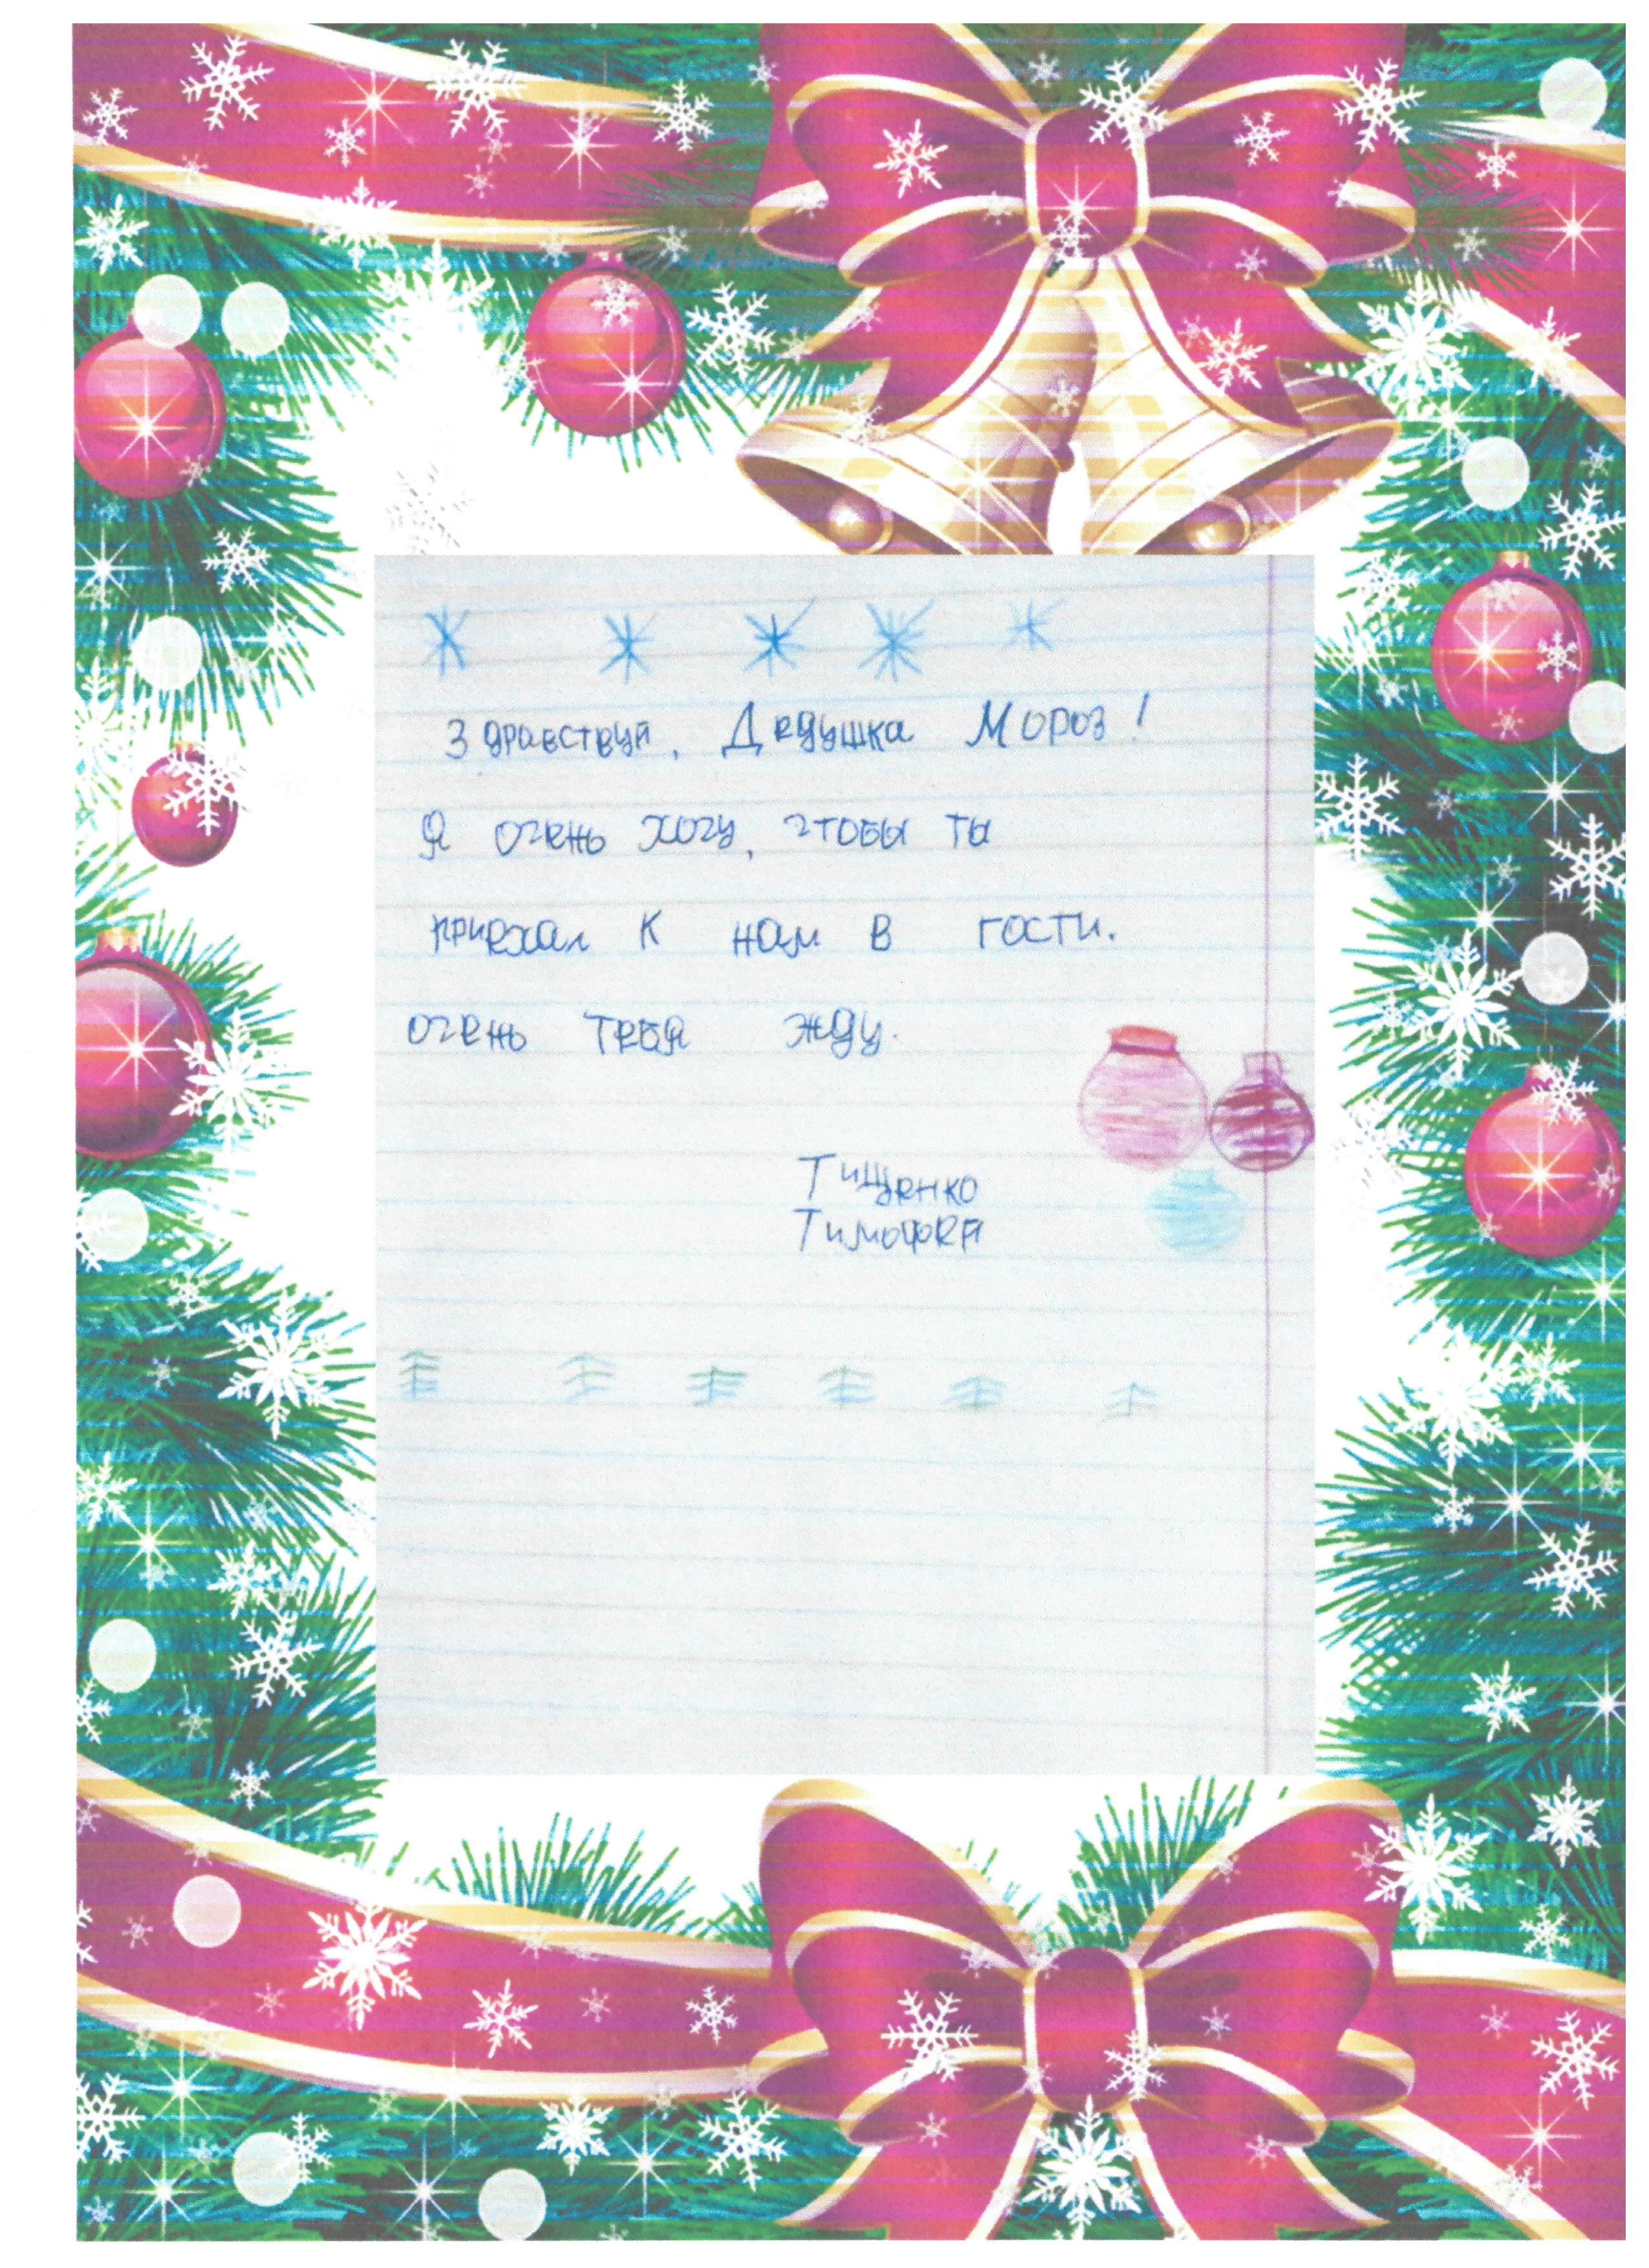 Здравствуй, Дедушка Мороз!
Я очень хочу, чтобы ты
приехал к нам в гости.
очень тебя жду.
Тищенко
Тимофей